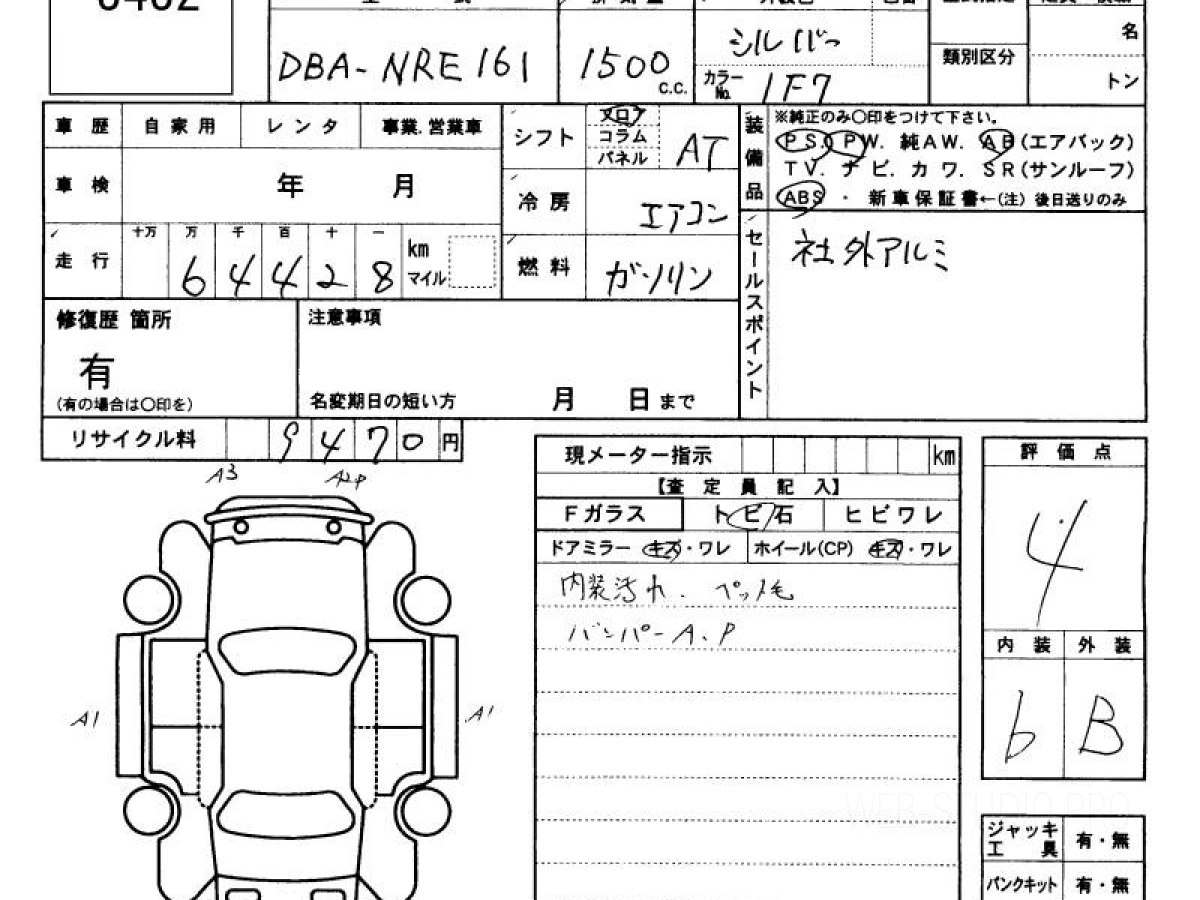 DBA-NRE161
1500
C.C.
シルバー
カラーNo. 1F7
類別区分
名
トン
車歴 自家用 レンタ 事業.営業車
車検 年 月
走行 十万 万 千 百 十 一
6 4 4 2 8 km マイル
シフト フロア コラム パネル AT
冷房 エアコン
燃料 ガソリン
装備品
※純正のみ〇印をつけて下さい。
PS. PW. 純AW. AB(エアバック)
TV. ナビ. カワ. SR(サンルーフ)
ABS ・ 新車保証書←(注) 後日送りのみ
セールスポイント
社外アルミ
修復歴 箇所
有
(有の場合は〇印を)
注意事項
名変期日の短い方 月 日まで
リサイクル料 9 4 7 0 円
A3 A2P
A1 A1
現メーター指示 km
【査定員記入】
Fガラス トビ石 ヒビワレ
ドアミラー キズ・ワレ ホイール(CP) キズ・ワレ
内装汚れ. ペット毛
バンパーA.P
評価点
4
内装 外装
b B
ジャッキ工具 有・無
パンクキット 有・無
WEB-STUDIO.PRO